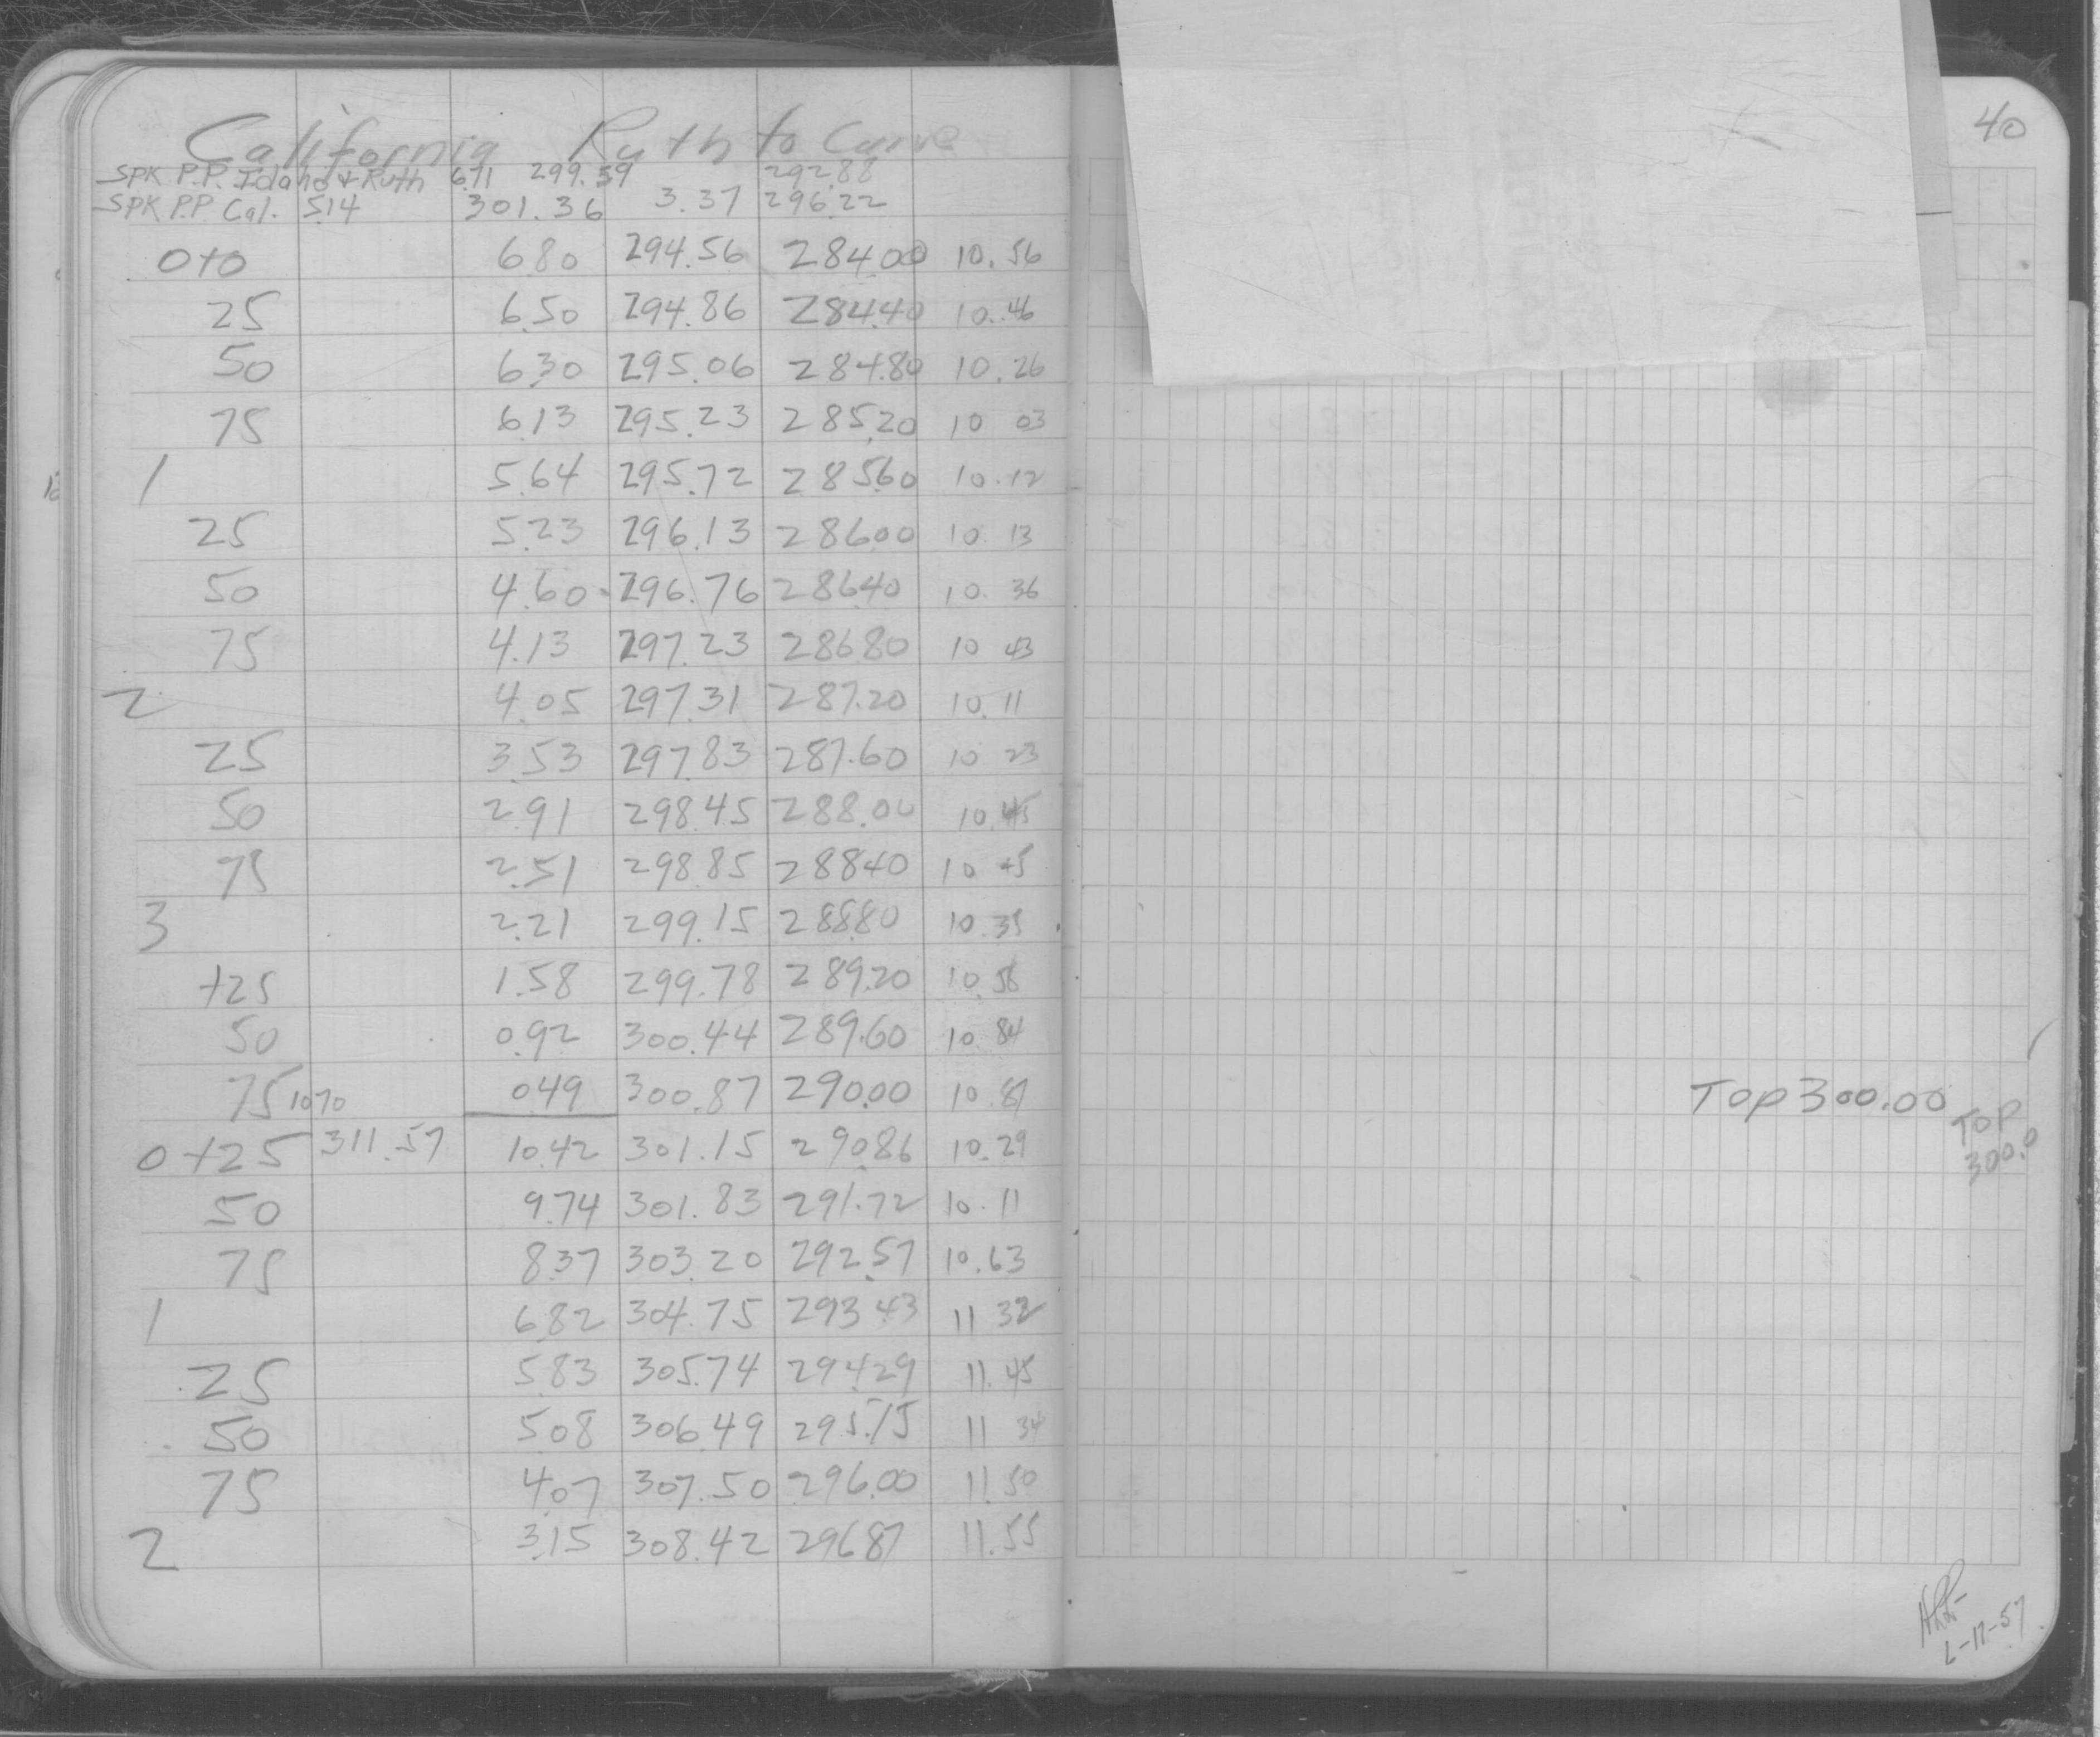 California Ruth to Curve
SPK P.P. Idaho & Ruth 6.71 299.59 292.88
SPK P.P. Cal. 5.14 301.36 3.37 296.22
0+0 6.80 294.56 284.00 10.56
25 6.50 294.86 284.40 10.46
50 6.30 295.06 284.80 10.26
75 6.13 295.23 285.20 10 03
1 5.64 295.72 285.60 10.12
25 5.23 296.13 286.00 10.13
50 4.60 296.76 286.40 10.36
75 4.13 297.23 286.80 10 43
2 4.05 297.31 287.20 10.11
25 3.53 297.83 287.60 10 23
50 2.91 298.45 288.00 10.45
75 2.51 298.85 288.40 10 45
3 2.21 299.15 288.80 10.35
+25 1.58 299.78 289.20 10.58
50 0.92 300.44 289.60 10.84
75 10.70 0.49 300.87 290.00 10.87
0+25 311.57 10.42 301.15 290.86 10.29
50 9.74 301.83 291.72 10.11
75 8.37 303.20 292.57 10.63
1 6.82 304.75 293.43 11 32
25 5.83 305.74 294.29 11.45
50 5.08 306.49 295.15 11 34
75 4.07 307.50 296.00 11.50
2 3.15 308.42 296.87 11.55
40
Top 300.00
Top
300.0